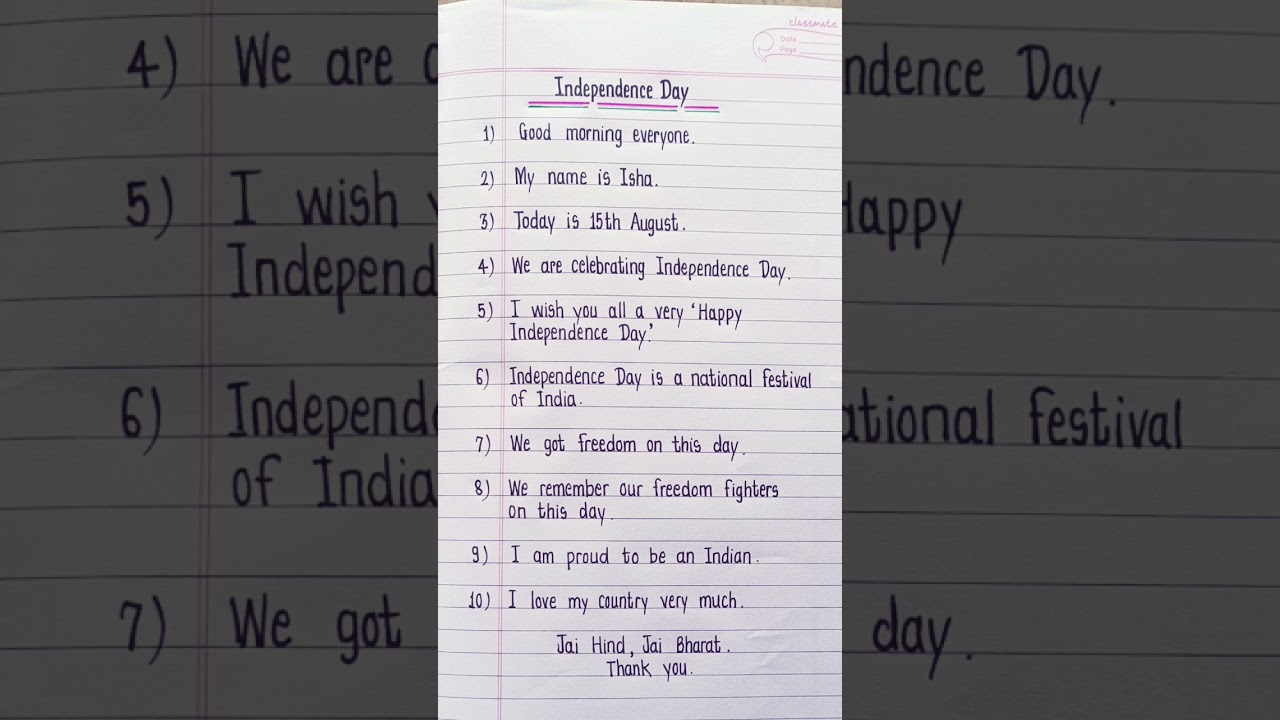 classmate
Date
Page
Independence Day
1) Good morning everyone.
2) My name is Isha.
3) Today is 15th August.
4) We are celebrating Independence Day.
5) I wish you all a very ‘Happy
Independence Day.’
6) Independence Day is a national festival
of India.
7) We got freedom on this day.
8) We remember our freedom fighters
on this day.
9) I am proud to be an Indian.
10) I love my country very much.
Jai Hind, Jai Bharat.
Thank you.